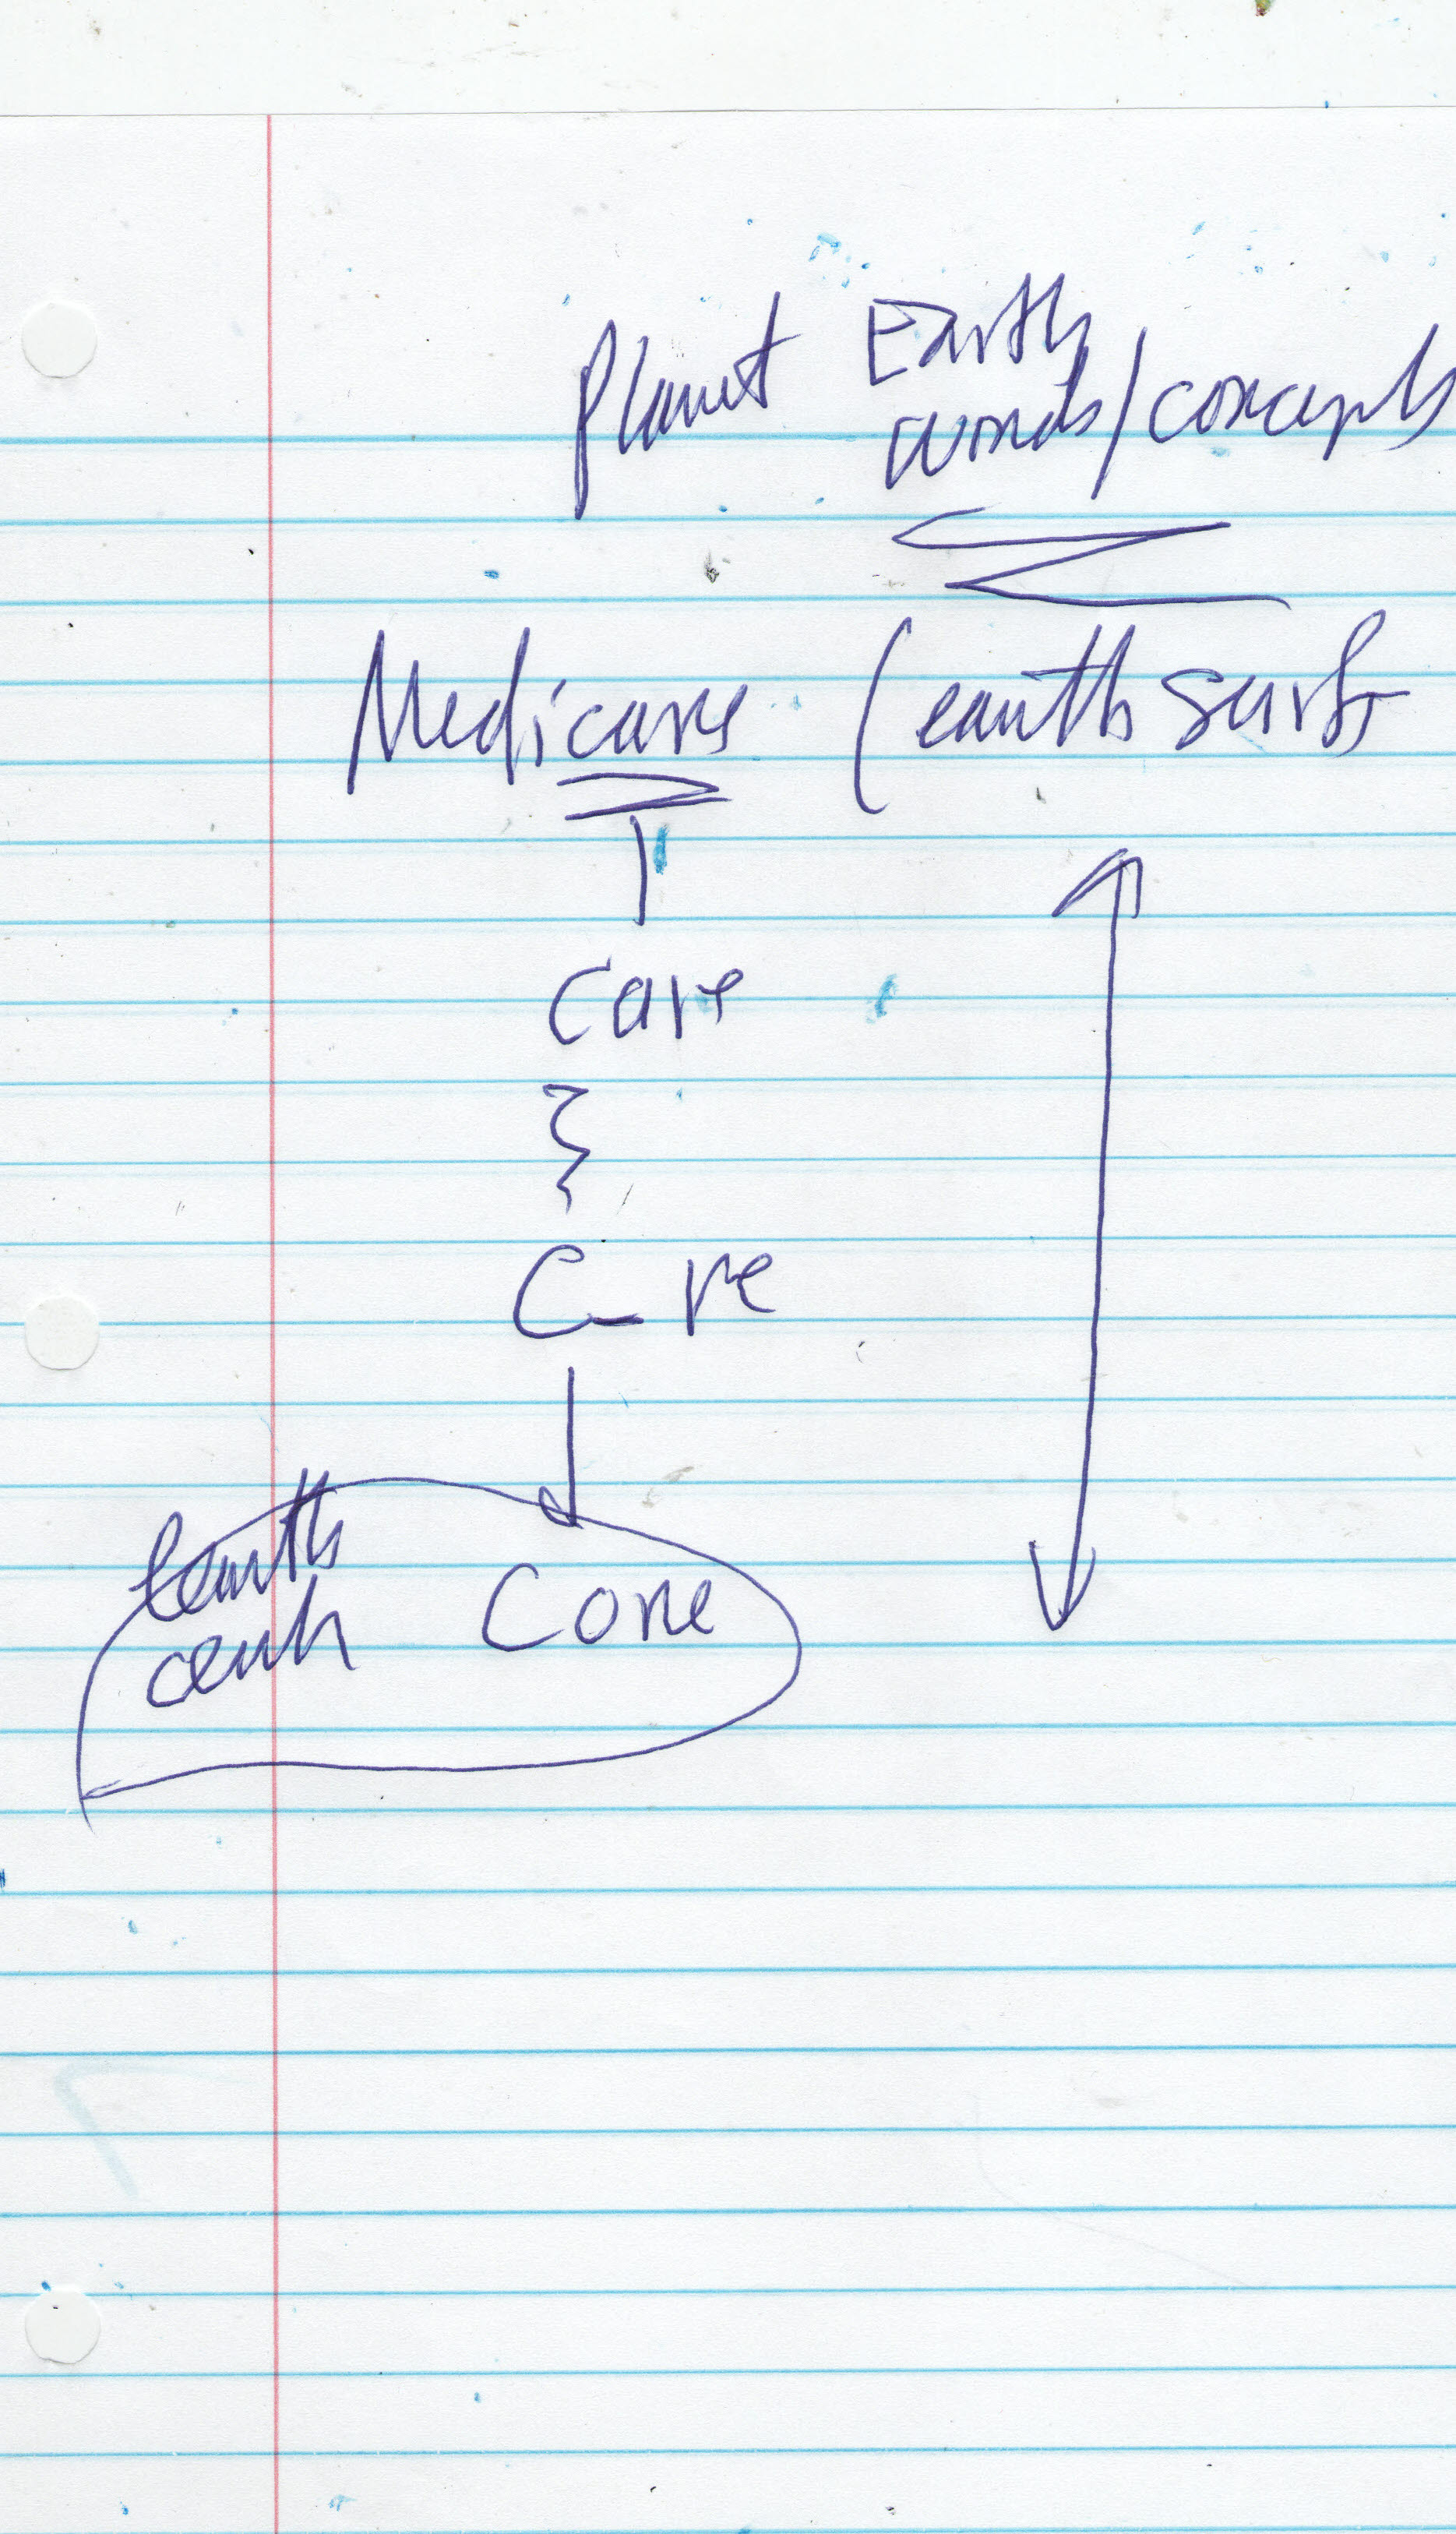 planet Earth
words/concepts
Medicare (earth surf
care
C_re
earth
Core